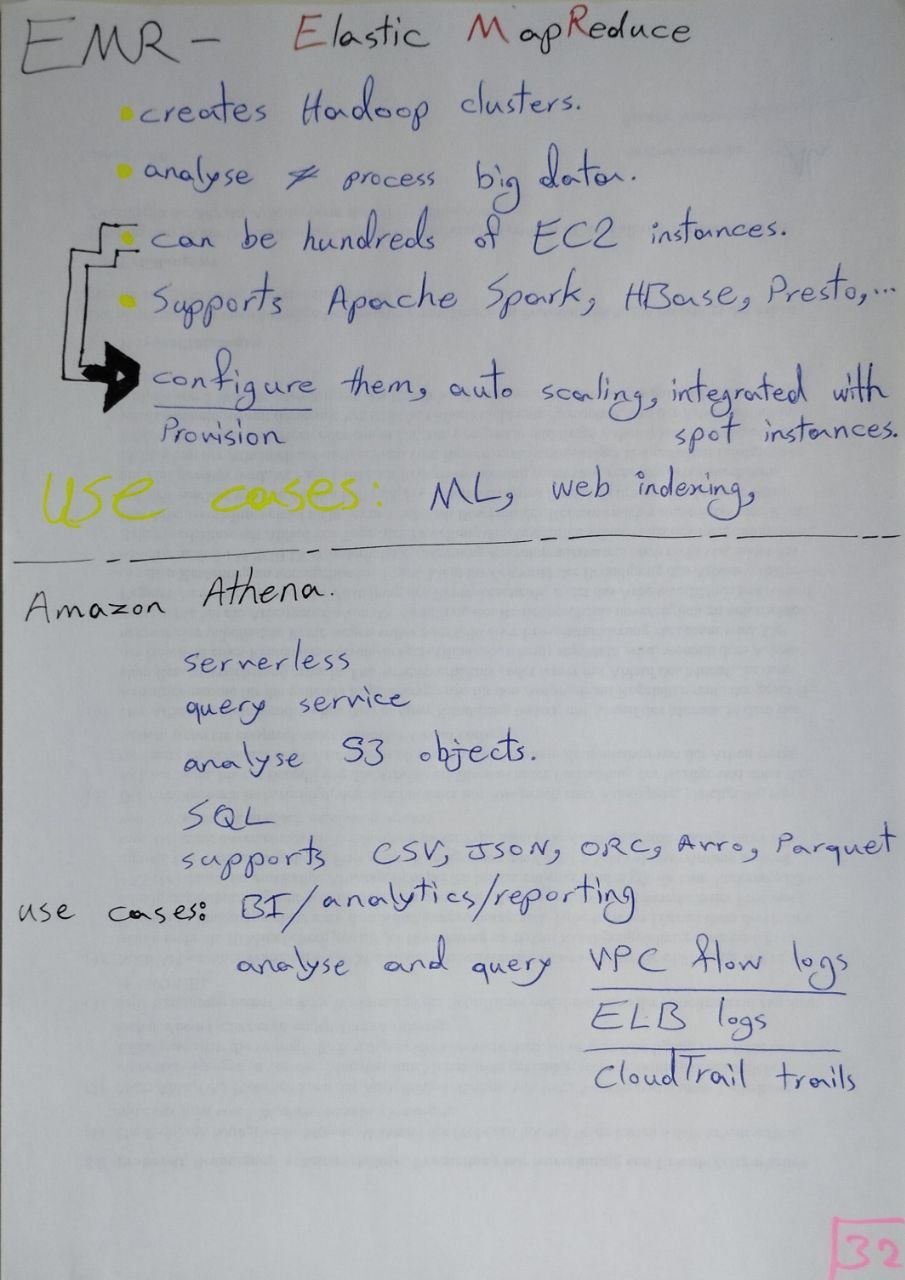 EMR - Elastic MapReduce
• creates Hadoop clusters.
• analyse ≠ process big data.
• can be hundreds of EC2 instances.
• Supports Apache Spark, HBase, Presto,...
configure them, auto scaling, integrated with
Provision spot instances.
Use cases: ML, web indexing,
Amazon Athena.
serverless
query service
analyse S3 objects.
SQL
supports CSV, JSON, ORC, Avro, Parquet
use cases: BI/analytics/reporting
analyse and query VPC flow logs
ELB logs
CloudTrail trails
32